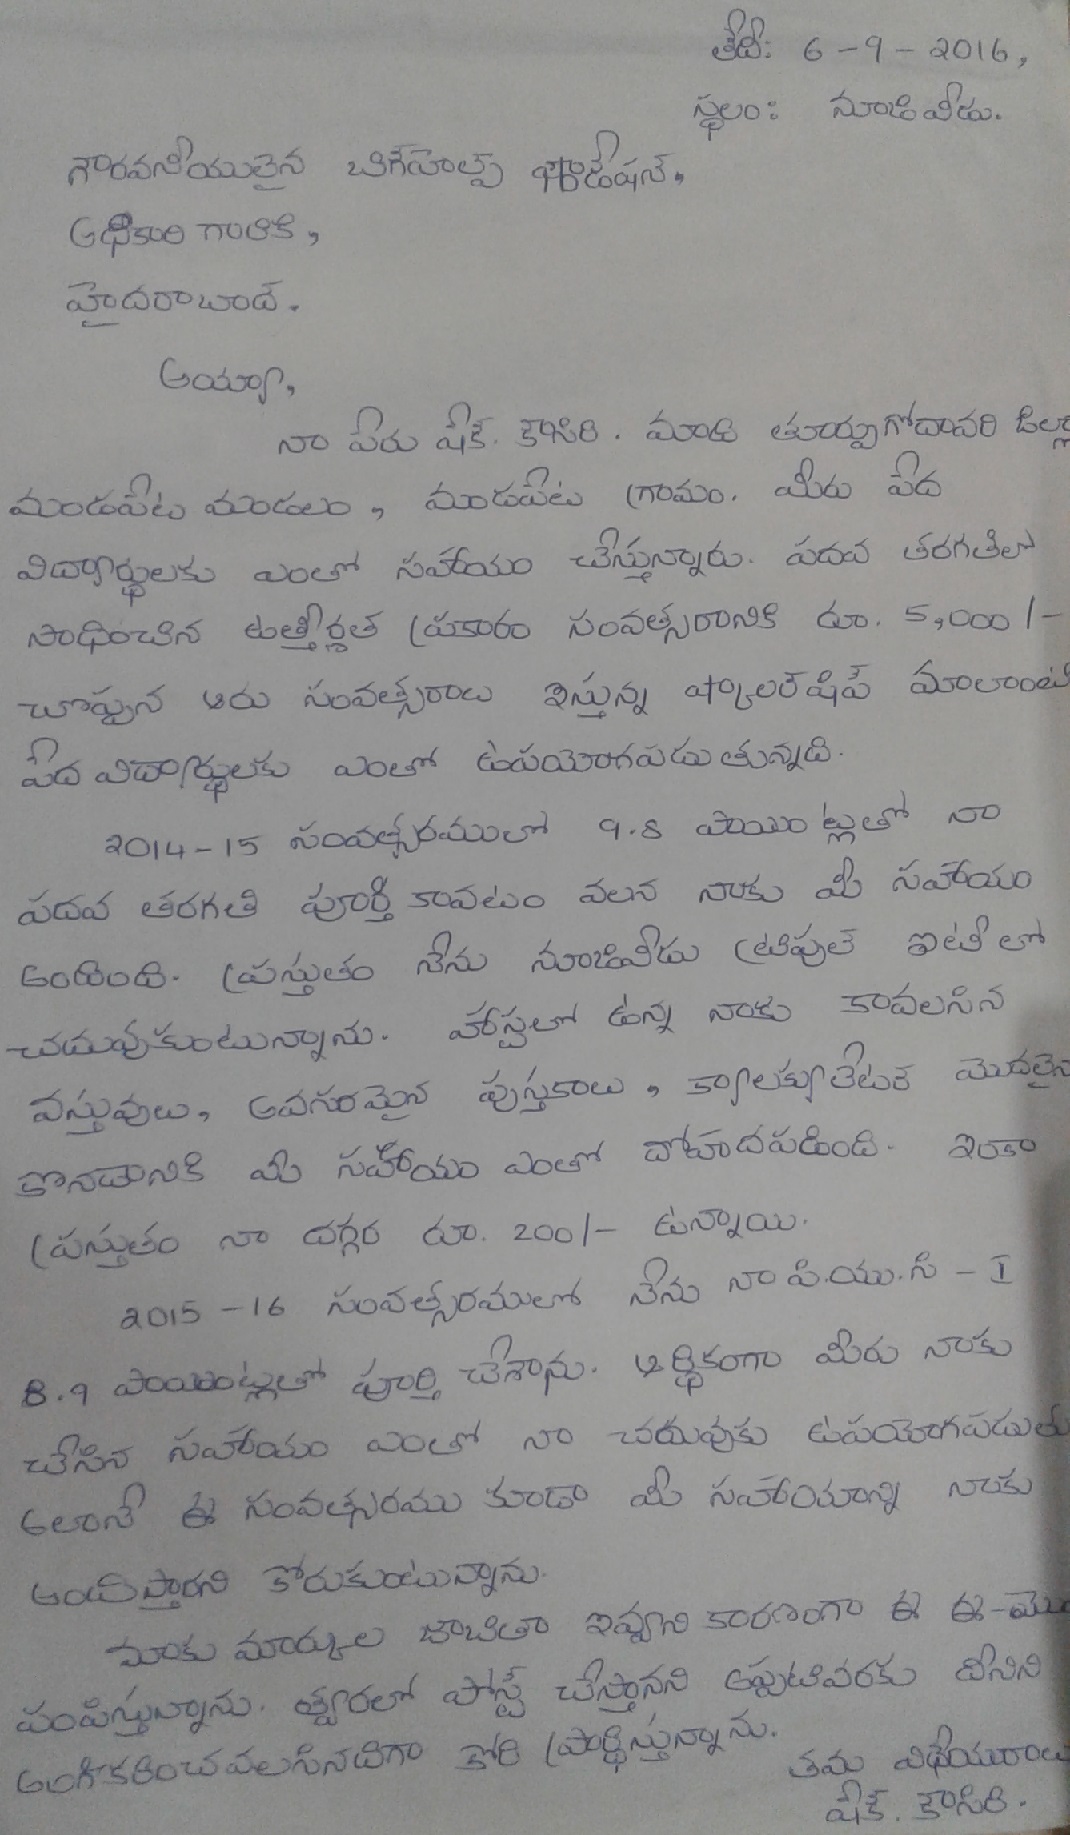 తేదీ: 6-9-2016,
స్థలం: నూజివీడు.
గౌరవనీయులైన బిగ్‌హెల్ప్ ఫౌండేషన్,
అధికారి గారికి,
హైదరాబాద్.
అయ్యా,
నా పేరు షేక్. కౌసిరి. మాది తూర్పుగోదావరి జిల్లా
మండపేట మండలం, మండపేట గ్రామం. మీరు పేద
విద్యార్థులకు ఎంతో సహాయం చేస్తున్నారు. పదవ తరగతిలో
సాధించిన ఉత్తీర్ణత ప్రకారం సంవత్సరానికి రూ. 5,000/-
చొప్పున ఆరు సంవత్సరాలు ఇస్తున్న ష్కాలర్‌షిప్ మాలాంటి
పేద విద్యార్థులకు ఎంతో ఉపయోగపడుతున్నది.
2014-15 సంవత్సరములో 9.8 పాయింట్లుతో నా
పదవ తరగతి పూర్తి కావటం వలన నాకు మీ సహాయం
అందింది. ప్రస్తుతం నేను నూజివీడు ట్రిపుల్ ఐటీ లో
చదువుకుంటున్నాను. హాస్టల్లో ఉన్న నాకు కావలసిన
వస్తువులు, అవసరమైన పుస్తకాలు, క్యాలక్యులేటర్ మొదలైన
కొనడానికి మీ సహాయం ఎంతో దోహదపడింది. ఇంకా
ప్రస్తుతం నా దగ్గర రూ. 200/- ఉన్నాయి.
2015-16 సంవత్సరములో నేను నా పి.యు.సి - I
8.9 పాయింట్లతో పూర్తి చేశాను. ఆర్థికంగా మీరు నాకు
చేసిన సహాయం ఎంతో నా చదువుకు ఉపయోగపడుతు
అలానే ఈ సంవత్సరము కూడా మీ సహాయాన్ని నాకు
అందిస్తారని కోరుకుంటున్నాను.
మాకు మార్కుల జాబితా ఇవ్వని కారణంగా ఈ ఈ-మె
పంపిస్తున్నాను. త్వరలో పోస్ట్ చేస్తానని అప్పటివరకు దీనిని
అంగీకరించవలసినదిగా కోరి ప్రార్థిస్తున్నాను.
తమ విధేయురాలు
షేక్. కౌసిరి.